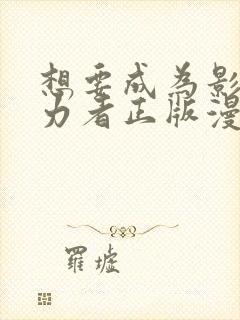 想要成为影
力者正版漫
罗墟